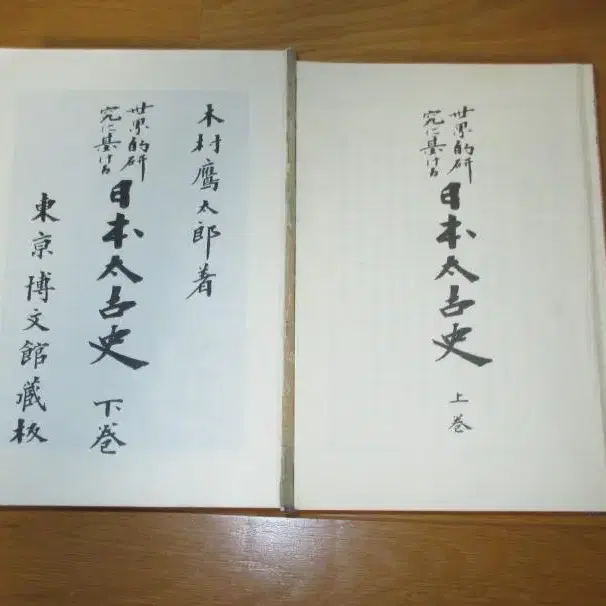 世界的研
究に基ける
日本太古史
上巻
木村鷹太郎著
世界的研
究に基ける
日本太古史
下巻
東京博文館蔵板